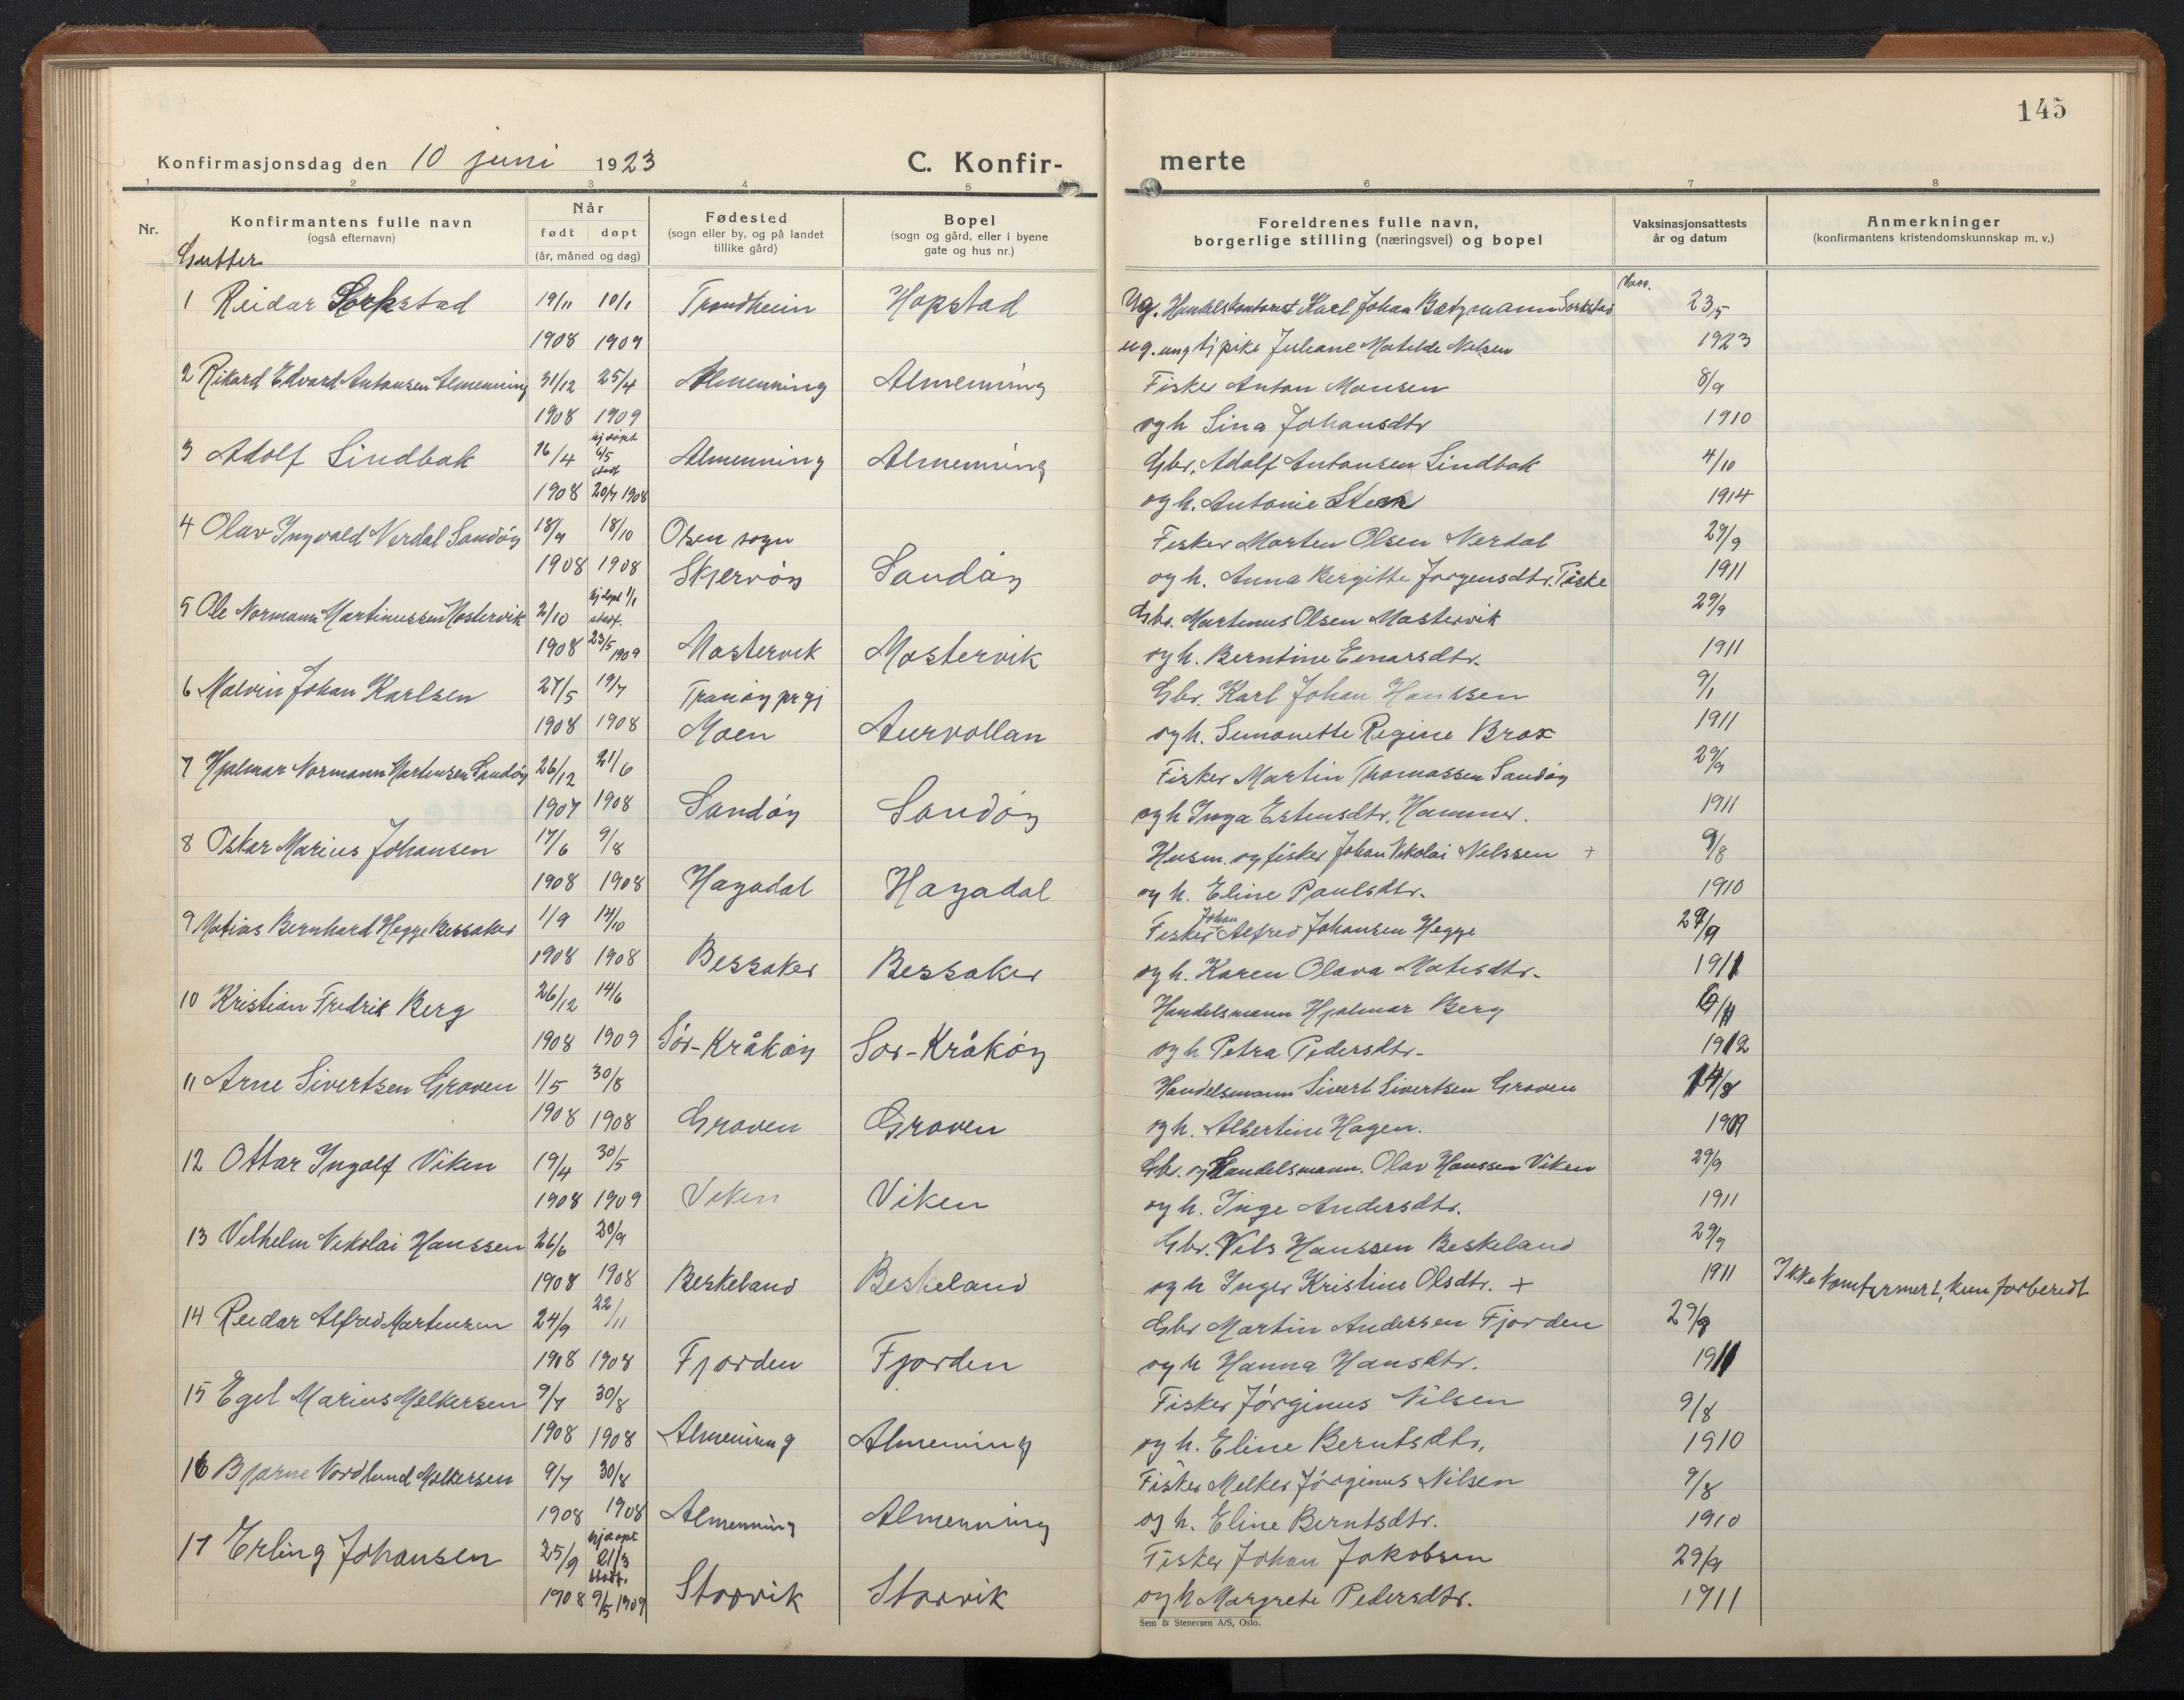 145
Konfirmasjonsdag den 10 juni 1923 C. Konfir-merte
1 2 3 4 5 6 7 8
Nr. Konfirmantens fulle navn (også efternavn) Når født døpt (år, måned og dag) Fødested (sogn eller by, og på landet tillike gård) Bopel (sogn og gård, eller i byene gate og hus nr.) Foreldrenes fulle navn, borgerlige stilling (næringsvei) og bopel Vaksinasjonsattests år og datum Anmerkninger (konfirmantens kristendomskunnskap m. v.)
Gutter
Vacc.
1 Reidar Sørkstad 19/11 10/1 Trondheim Hopstad Ug. Handelskontorist Karl Johan Bætzmann Sørkstad 23/5
1908 1909 ug. ung tj pike Juliane Matilde Nilsen 1923
2 Rikard Edvard Antonsen Almenning 31/12 25/4 Almenning Almenning Fisker Anton Monsen 8/9
1908 1909 og h Sina Johansdtr 1910
3 Adolf Lindbak 16/4 hj døpt 6/5 stadf. Almenning Almenning Gbr. Adolf Antonsen Lindbak 4/10
1908 20/7 1908 og h. Antonie Steen 1914
4 Olav Ingvald Nerdal Sandöy 18/9 18/10 Olsen sogn Fisker Morten Olsen Nerdal 29/9
1908 1908 Skjervöy Sandöy og h. Anna Bergitte Jørgensdtr. Fiske 1911
5 Ole Normann Martinussen Mostervik 2/10 hj døpt 1/1 stadf. Gbr. Martinus Olsen Mastervik 29/9
1908 23/5 1909 Mastervik Mostervik og h. Berntine Einarsdtr. 1911
6 Malvin Johan Karlsen 27/5 19/7 Tranöy prgj Gbr. Karl Johan Hanssen 9/1
1908 1908 Moen Aurvollan og h. Simonette Regine Brox 1911
7 Hjalmar Normann Martinsen Sandöy 26/12 21/6 Fisker Martin Thomassen Sandöy 29/9
1907 1908 Sandöy Sandöy og h Inga Estensdtr. Hammer. 1911
8 Oskar Marius Johansen 17/6 9/8 Husm. og fisker Johan Nikolai Nilssen + 9/8
1908 1908 Hayadal Hayadal og h. Eline Paulsdtr. 1910
9 Matias Bernhard Hegge Bessaker 1/9 14/10 Fisker Johan Alfred Johansen Hegge 29/9
1908 1908 Bessaker Bessaker og h. Karen Olava Matisdtr. 1911
10 Kristian Fredrik Berg 26/12 14/6 Handelsmann Hjalmar Berg
1908 1909 Sör-Kråköy Sör-Kråköy og h Petra Pedersdtr. 1912
11 Arne Sivertsen Graven 1/5 30/8 Handelsmann Sivert Sivertsen Graven 14/8
1908 1908 Graven Graven og h. Albertine Hagen. 1909
12 Ottar Ingolf Viken 19/4 30/5 Gbr. og Handelsmann. Olav Hanssen Viken 29/9
1908 1909 Viken Viken og h. Inge Andersdtr. 1911
13 Vilhelm Nikolai Hanssen 26/6 20/9 Gbr. Nils Hanssen Beskeland 29/9
1908 1908 Beskeland Beskeland og h Inger Kristine Olsdtr. + 1911 Ikke konfirmert, kun forberedt
14 Reidar Alfred Martinsen 24/9 22/11 Gbr Martin Andersen Fjorden 29/9
1908 1908 Fjorden Fjorden og h Hanna Hansdtr. 1911
15 Egil Marius Melkersen 9/7 30/8 Fisker Jörginus Nilsen 9/8
1908 1908 Almenning Almenning og h. Eline Berntsdtr, 1910
16 Bjarne Nordlund Melkersen 9/7 30/8 Fisker Melker Jörginus Nilsen 9/8
1908 1908 Almenning Almenning og h. Eline Berntsdtr. 1910
17 Erling Johansen 25/9 hj døpt 21/3 stadf. Fisker Johan Jakobsen 29/9
1908 9/5 1909 Storvik Storvik og h Margrete Pedersdtr. 1911
Sem & Stenersen A/S, Oslo.